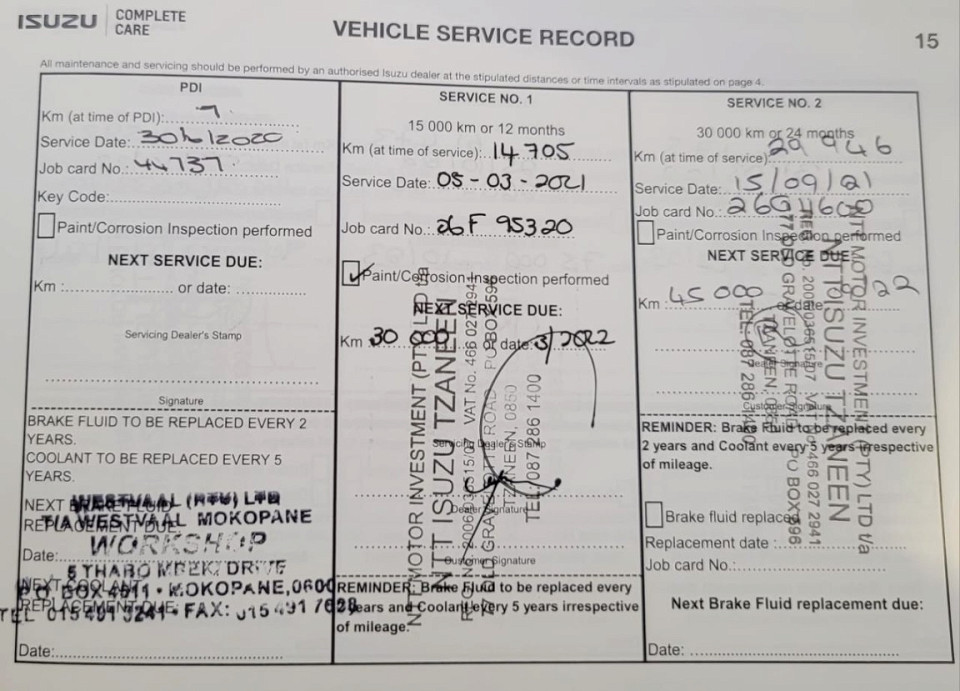 ISUZU COMPLETE CARE
VEHICLE SERVICE RECORD
15
All maintenance and servicing should be performed by an authorised Isuzu dealer at the stipulated distances or time intervals as stipulated on page 4.
PDI
Km (at time of PDI): 7
Service Date: 30/6/2020
Job card No.: 44737
Key Code:
Paint/Corrosion Inspection performed
NEXT SERVICE DUE:
Km : or date:
Servicing Dealer's Stamp
Signature
BRAKE FLUID TO BE REPLACED EVERY 2
YEARS.
COOLANT TO BE REPLACED EVERY 5
YEARS.
NEXT BRAKE FLUID
REPLACEMENT DUE:
Date:
NEXT COOLANT
REPLACEMENT DUE:
Date:
WESTVAAL (PTY) LTD
T/A WESTVAAL MOKOPANE
WORKSHOP
5 THABO MBEKI DRIVE
P O BOX 4011 • MOKOPANE, 0600
TEL 015 491 3241 • FAX: 015 491 7629
SERVICE NO. 1
15 000 km or 12 months
Km (at time of service): 14 705
Service Date: 05 - 03 - 2021
Job card No.: 26F 95320
Paint/Corrosion Inspection performed
NEXT SERVICE DUE:
Km 30 000 or date: 3/2022
Servicing Dealer's Stamp
Dealer Signature
Customer Signature
REMINDER: Brake Fluid to be replaced every
2 years and Coolant every 5 years irrespective
of mileage.
NTT MOTOR INVESTMENT (PTY) LTD t/a
NTT ISUZU TZANEEN
VAT No. 466 027 2941
OLD GRAVELOTTE ROAD PO BOX 596
TZANEEN, 0850
TEL: 087 286 1400
SERVICE NO. 2
30 000 km or 24 months
Km (at time of service): 29 946
Service Date: 15/09/21
Job card No.:
Paint/Corrosion Inspection performed
NEXT SERVICE DUE
Km : 45 000 or date: 22
Dealer Signature
Customer Signature
REMINDER: Brake Fluid to be replaced every
2 years and Coolant every 5 years irrespective
of mileage.
Brake fluid replaced
Replacement date :
Job card No.:
Next Brake Fluid replacement due:
Date:
NTT MOTOR INVESTMENT (PTY) LTD t/a
NTT ISUZU TZANEEN
VAT No. 466 027 2941
OLD GRAVELOTTE ROAD PO BOX 596
TZANEEN, 0850
TEL: 087 286 1400